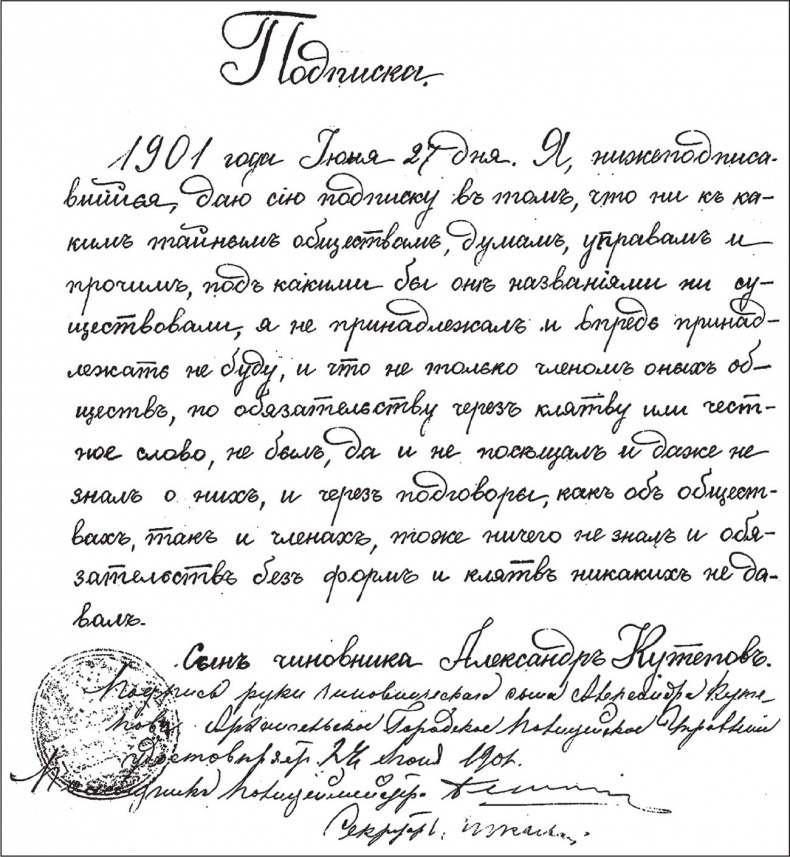 Подписка.
1901 года Іюня 27 дня. Я, нижеподписа-
вшійся, даю сію подписку въ томъ, что ни къ ка-
кимъ тайнымъ обществамъ, думамъ, управамъ и
прочимъ, подъ какими бы онѣ названіями ни су-
ществовали, я не принадлежалъ и впредь принад-
лежать не буду, и что не только членомъ оныхъ об-
ществъ, по обязательству черезъ клятву или чест-
ное слово, не былъ, да и не посѣщалъ и даже не
зналъ о нихъ, и черезъ подговоры, какъ объ общест-
вахъ, такъ и членахъ, тоже ничего не зналъ и обя-
зательствъ безъ формъ и клятвъ никакихъ не да-
валъ.
Сынъ чиновника Александръ Кутеповъ.
Подпись руки чиновническаго сына Александра Куте-
пова Архангельское Городское Полицейское Управленіе
удостовѣряетъ. Іюня 1901.
Помощникъ Полицеймейстера
Секретарь